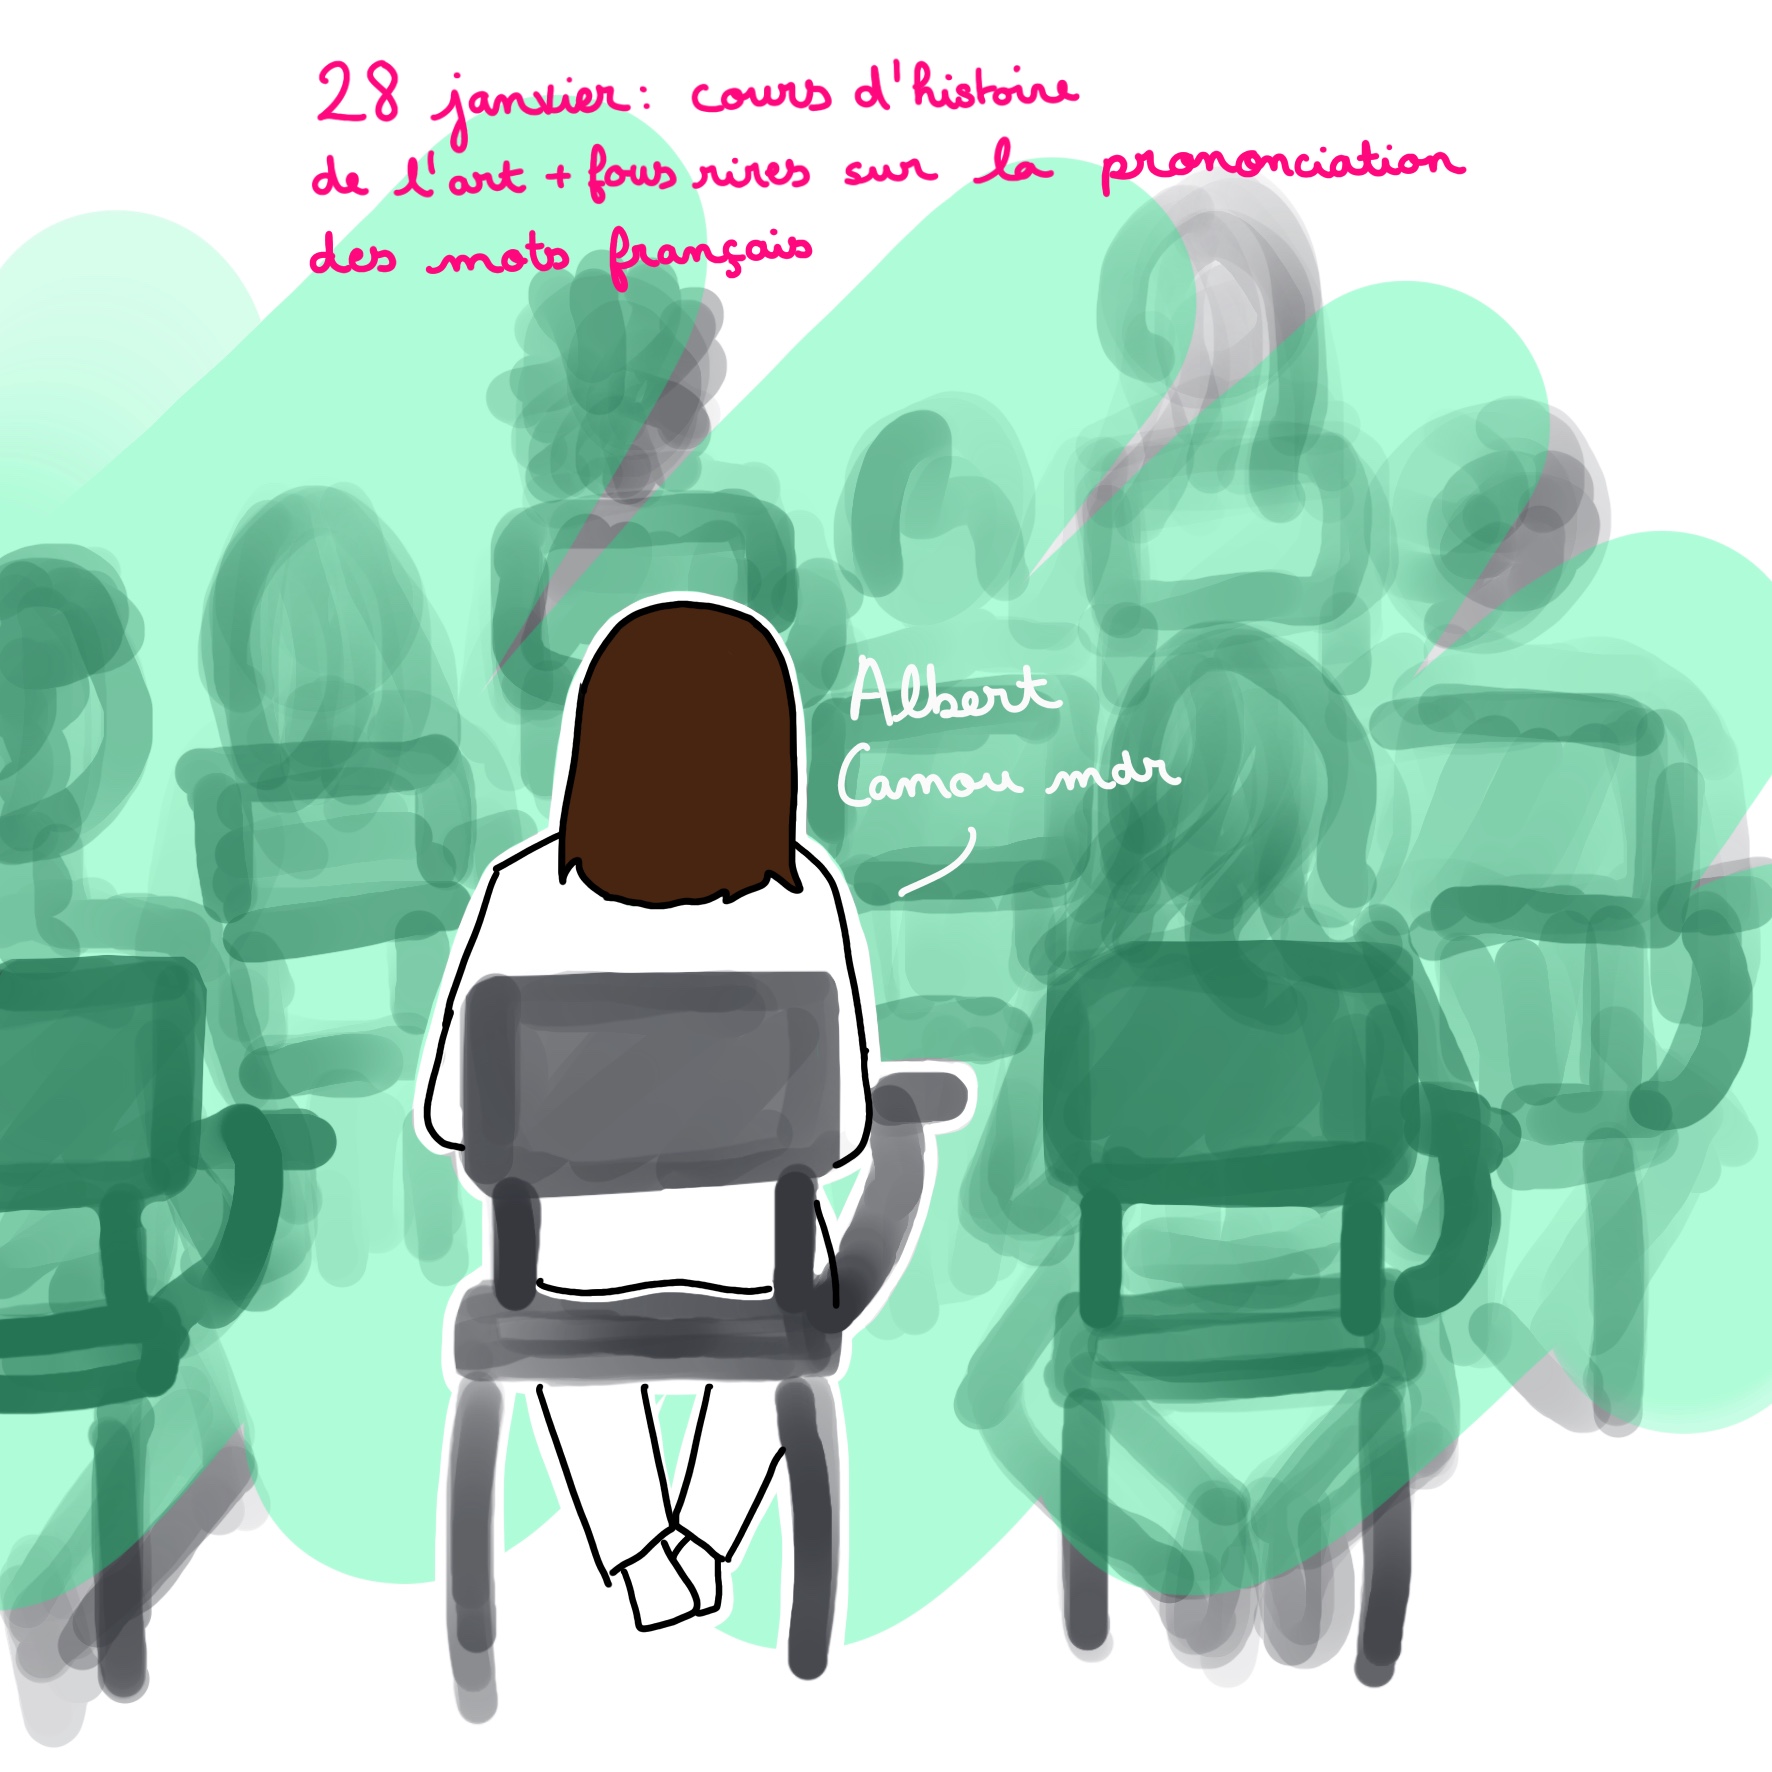 28 janvier: cours d'histoire
de l'art + fous rires sur la prononciation
des mots français
Albert
Camou mdr